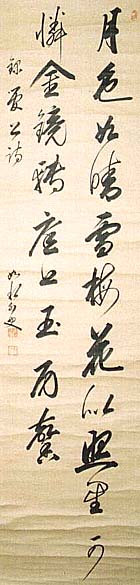 月色如晴雪梅花似照星可
憐金鏡轉庭上玉房馨
録菅公詩